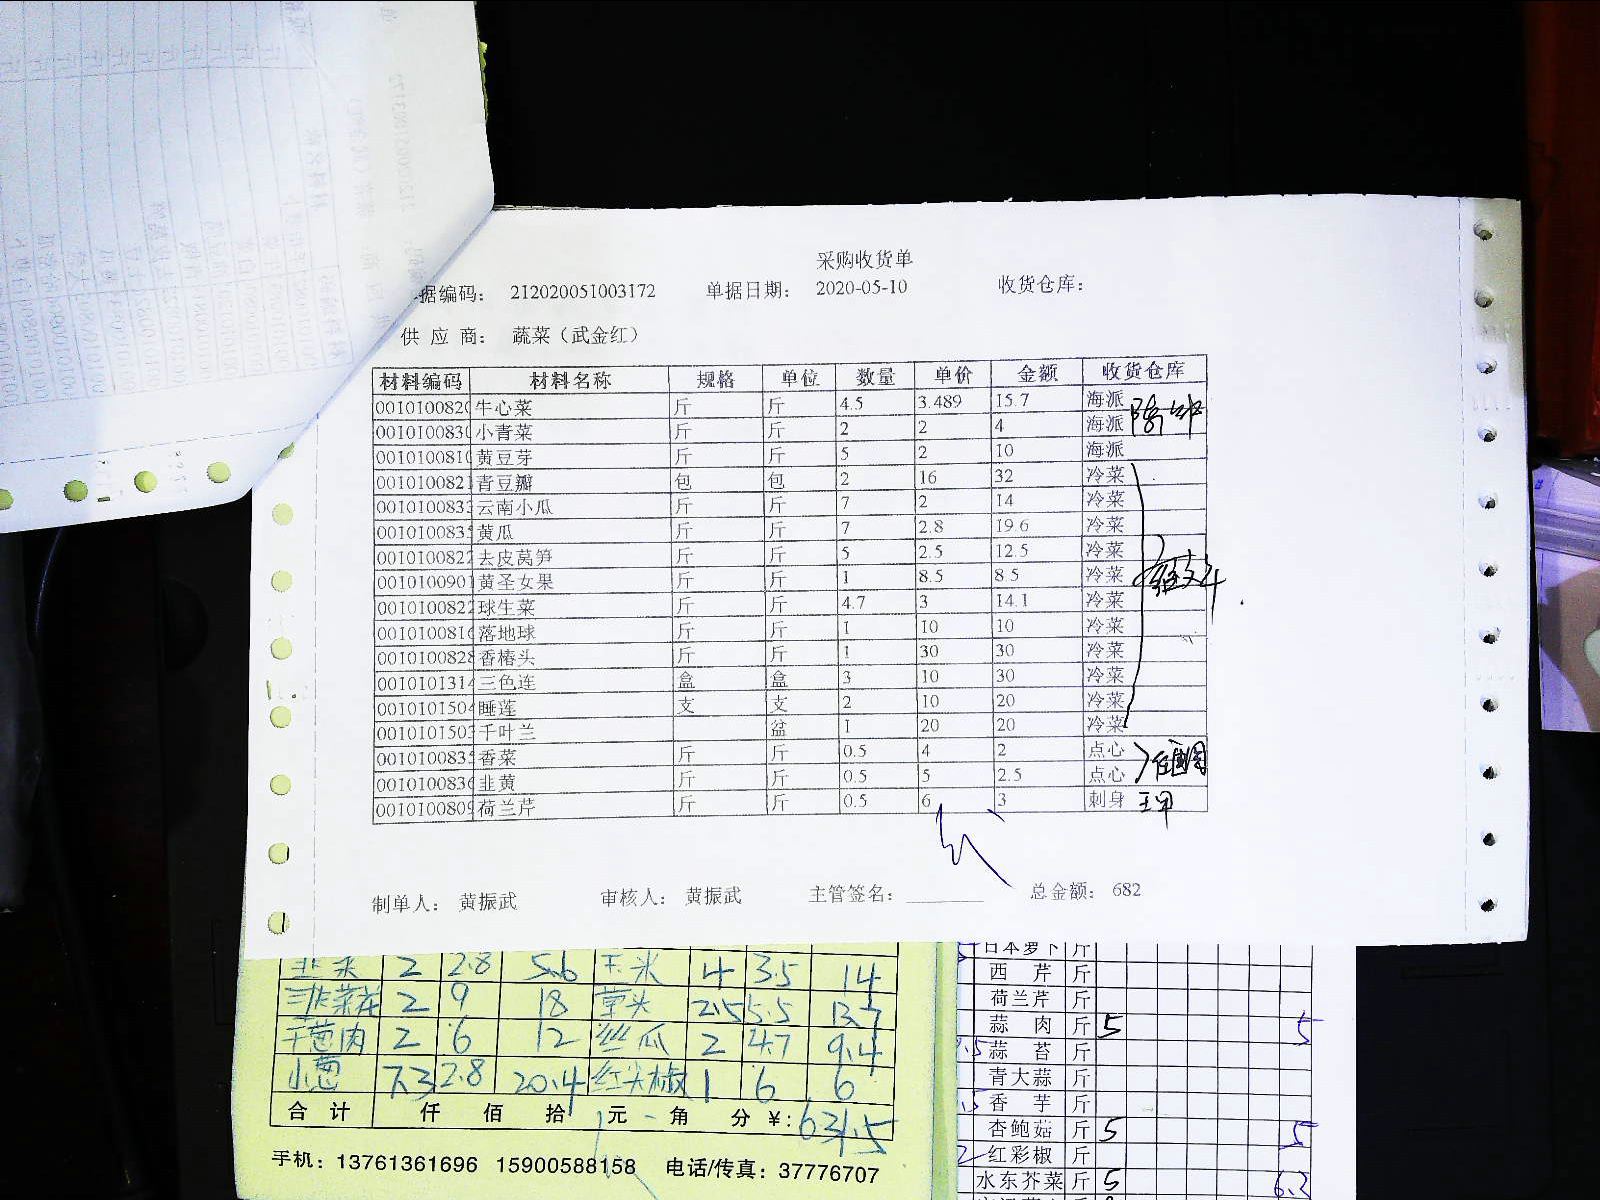 采购收货单
据编码： 212020051003172 单据日期： 2020-05-10 收货仓库：
供 应 商： 蔬菜（武金红）
材料编码 材料名称 规格 单位 数量 单价 金额 收货仓库
001010082 牛心菜 斤 斤 4.5 3.489 15.7 海派
001010083 小青菜 斤 斤 2 2 4 海派
001010081 黄豆芽 斤 斤 5 2 10 海派
001010082 青豆瓣 包 包 2 16 32 冷菜
001010083 云南小瓜 斤 斤 7 2 14 冷菜
001010083 黄瓜 斤 斤 7 2.8 19.6 冷菜
001010082 去皮莴笋 斤 斤 5 2.5 12.5 冷菜
001010090 黄圣女果 斤 斤 1 8.5 8.5 冷菜
001010082 球生菜 斤 斤 4.7 3 14.1 冷菜
001010081 落地球 斤 斤 1 10 10 冷菜
001010082 香椿头 斤 斤 1 30 30 冷菜
001010131 三色连 盒 盒 3 10 30 冷菜
001010150 睡莲 支 支 2 10 20 冷菜
001010150 千叶兰 盆 1 20 20 冷菜
001010083 香菜 斤 斤 0.5 4 2 点心
001010083 韭黄 斤 斤 0.5 5 2.5 点心
001010080 荷兰芹 斤 斤 0.5 6 3 刺身
制单人： 黄振武 审核人： 黄振武 主管签名： 总金额： 682
韭菜 2 2.8 5.6 玉米 4 3.5 14
韭菜花 2 9 18 草头 2.5 5.5 13.7
干葱肉 2 6 12 丝瓜 2 4.7 9.4
小葱 7.3 2.8 20.4 红尖椒 1 6 6
合 计 仟 佰 拾 元 角 分 ¥: 631.5
手机：13761361696 15900588158 电话/传真：37776707
日本萝卜 斤
西 芹 斤
荷兰芹 斤
蒜 肉 斤 5 5
蒜 苔 斤
青大蒜 斤
香 芋 斤
杏鲍菇 斤 5 5
红彩椒 斤
水东芥菜 斤 5 6.2